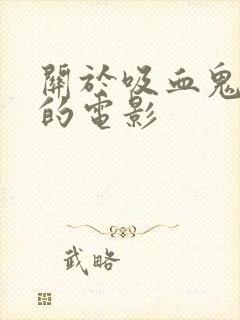 關於吸血鬼
的電影
武略